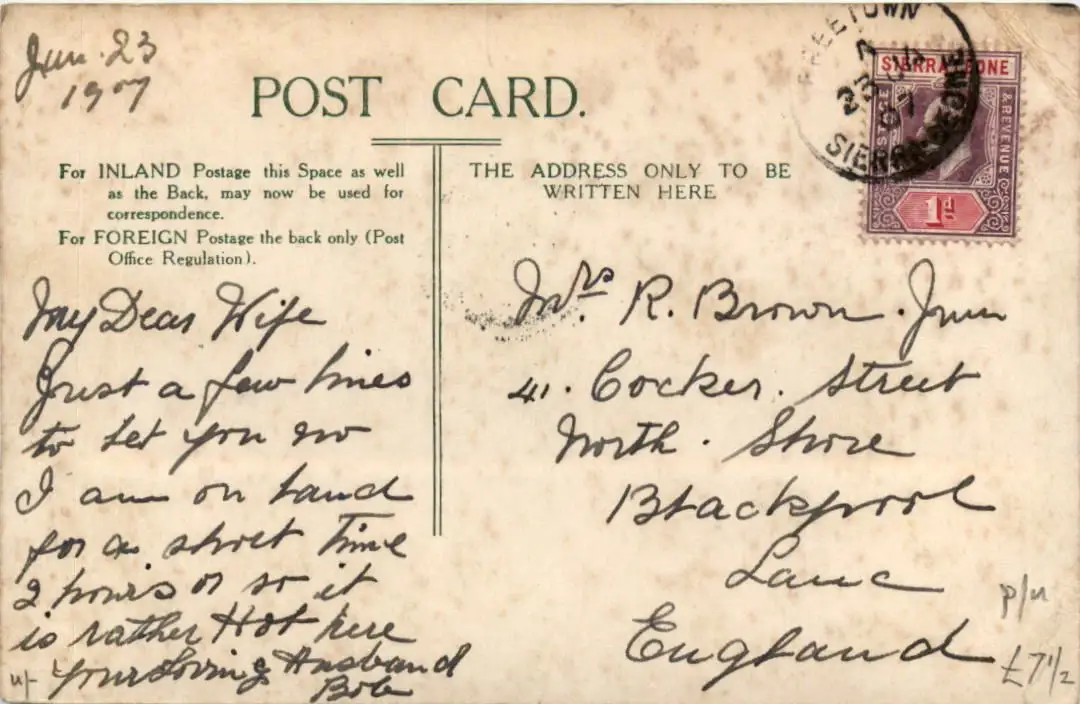 Jun. 23
1907
POST CARD.
For INLAND Postage this Space as well
as the Back, may now be used for
correspondence.
For FOREIGN Postage the back only (Post
Office Regulation).
THE ADDRESS ONLY TO BE
WRITTEN HERE
FREETOWN
SIERRA LEONE
SIERRA LEONE
POSTAGE
& REVENUE
1d
My Dear Wife
Just a few lines
to let you no
I am on land
for a short time
2 hours or so it
is rather Hot here
Your Loving Husband
Bob
Mrs. R. Brown. Jun
41. Cocker. Street
North. Shore
Blackpool
Lanc
England
p/u
£7 1/2